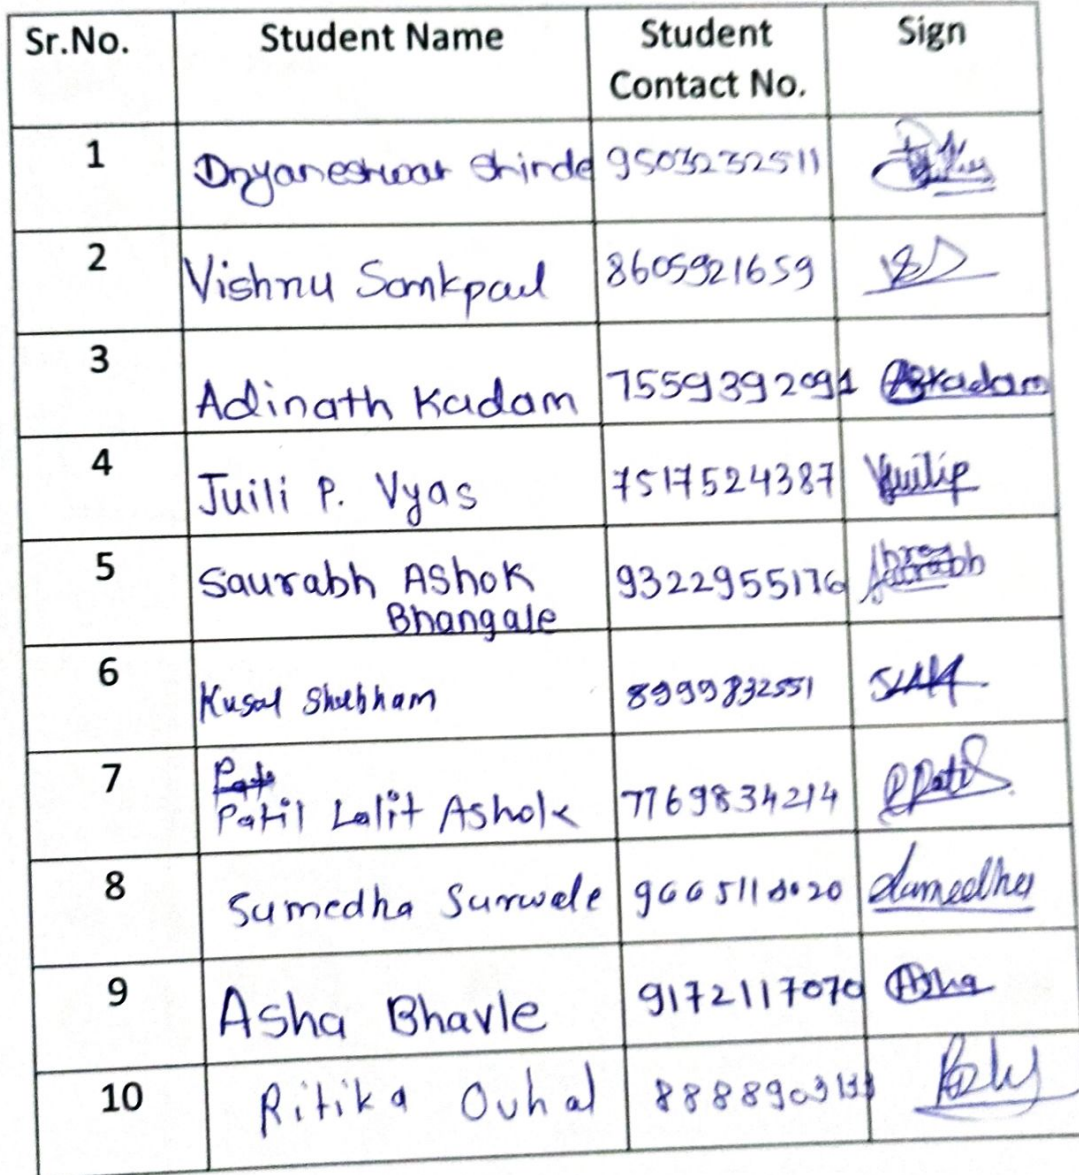 Sr.No. Student Name Student Contact No. Sign
1 Dnyaneshwar Shinde 9503232511
2 Vishnu Sankpal 8605921659
3 Adinath Kadam 7559392091 Askadam
4 Juili P. Vyas 7517524387 Juilip
5 Saurabh AShok Bhangale 9322955176
6 Kusal Shubham 8999832551
7 Patil Lalit Ashok 7769834214 Patil
8 Sumedha Surwale 9665118020 Sumedha
9 Asha Bhavle 9172117070 Asha
10 Ritika Ovhal 8888903133